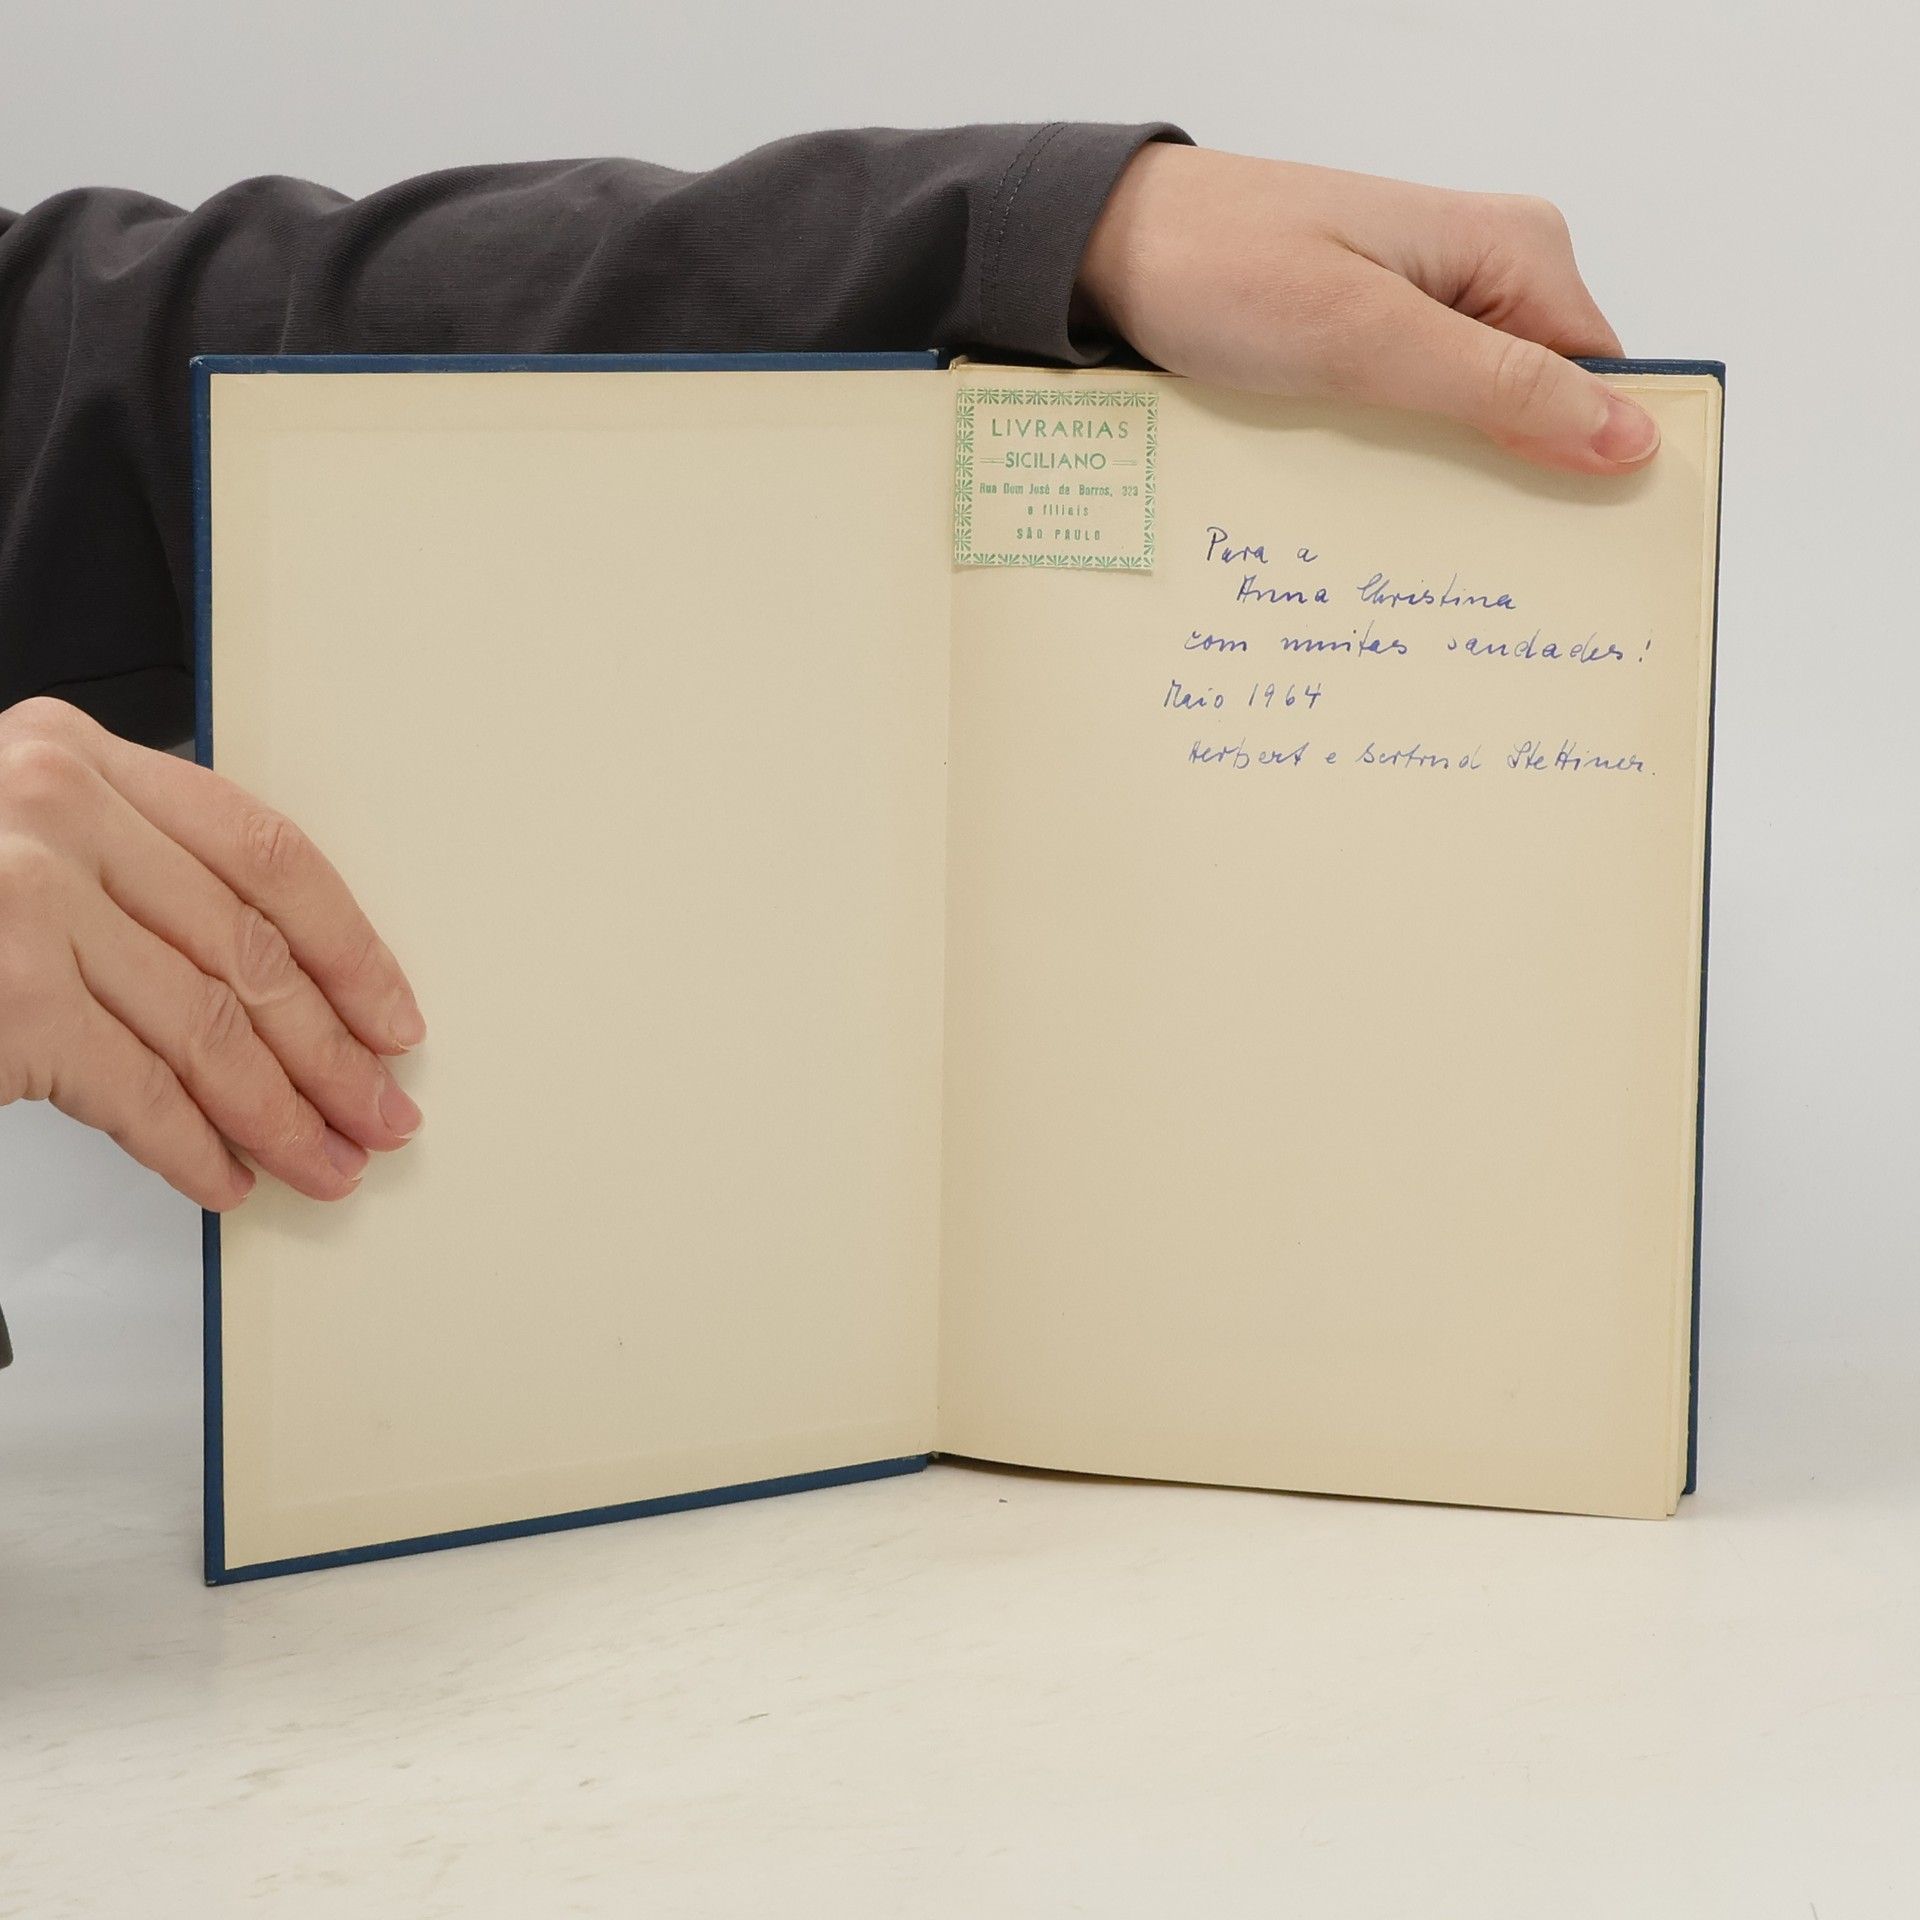 LIVRARIAS
SICILIANO
Rua Dom José de Barros, 323
e filiais
SÃO PAULO
Para a
Anna Christina
com muitas saudades!
Maio 1964
Herbert e Gertrud Stettiner.